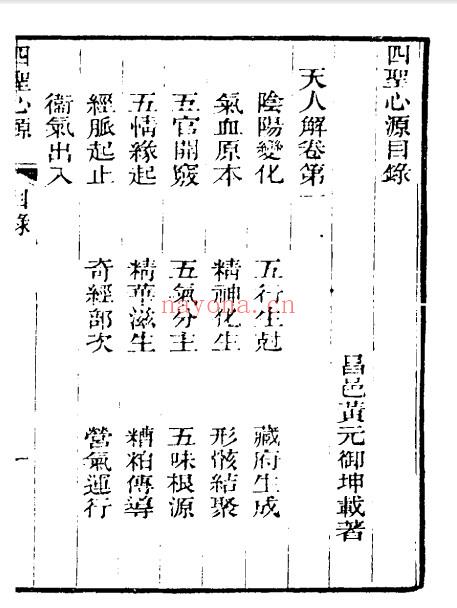 四聖心源目錄
昌邑黃元御坤載著
天人解卷第一
陰陽變化　五行生尅　藏府生成
氣血原本　精神化生　形骸結聚
五官開竅　五氣分主　五味根源
五情緣起　精華滋生　糟粕傳導
經脈起止　奇經部次　營氣運行
衞氣出入
四聖心源　目錄　一
nayona.cn